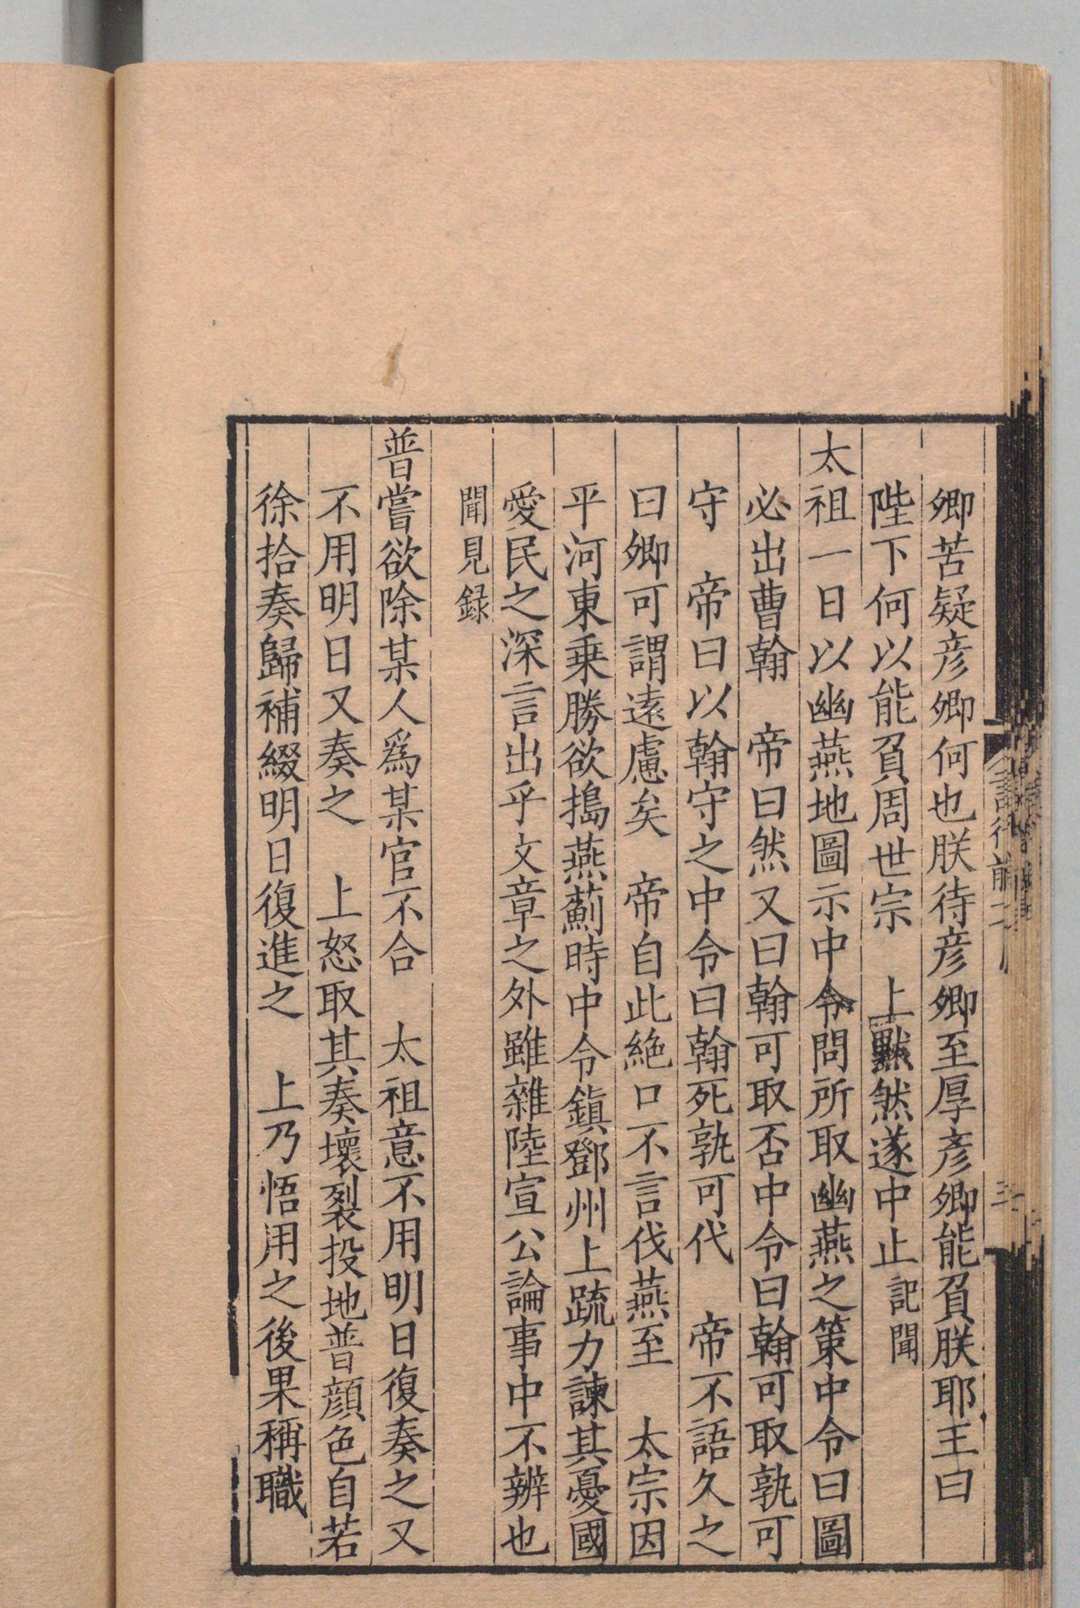 卿苦疑彦卿何也朕待彦卿至厚彦卿能負朕耶王曰
陛下何以能負周世宗　上默然遂中止記聞
太祖一日以幽燕地圖示中令問所取幽燕之策中令曰圖
必出曹翰　帝曰然又曰翰可取否中令曰翰可取孰可
守　帝曰以翰守之中令曰翰死孰可代　帝不語久之
曰卿可謂遠慮矣　帝自此絶口不言伐燕至　太宗因
平河東乗勝欲搗燕薊時中令鎮鄧州上疏力諫其憂國
愛民之深言出乎文章之外雖雜陸宣公論事中不辨也
聞見録
普嘗欲除某人爲某官不合　太祖意不用明日復奏之又
不用明日又奏之　上怒取其奏壞裂投地普顔色自若
徐拾奏歸補綴明日復進之　上乃悟用之後果稱職